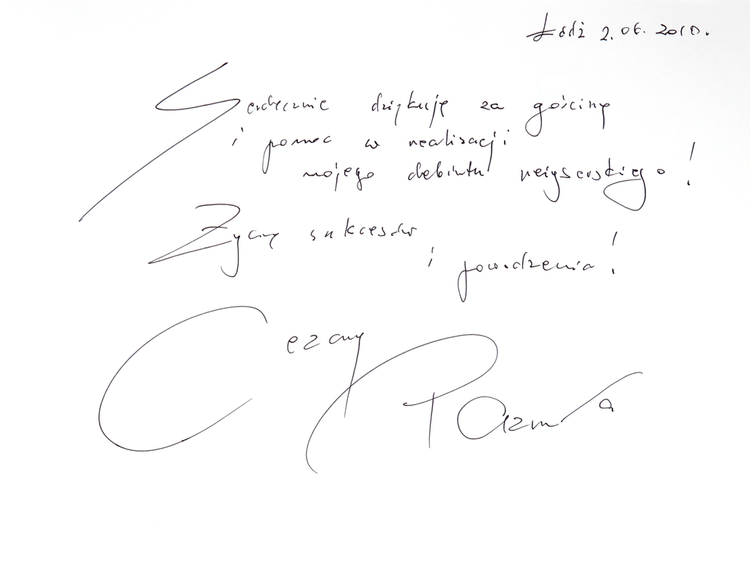 Łódź 2.06.2010.
Serdecznie dziękuję za gościnę
i pomoc w realizacji
mojego debiutu reżyserskiego!
Życzę sukcesów
i powodzenia!
Cezary Pazura